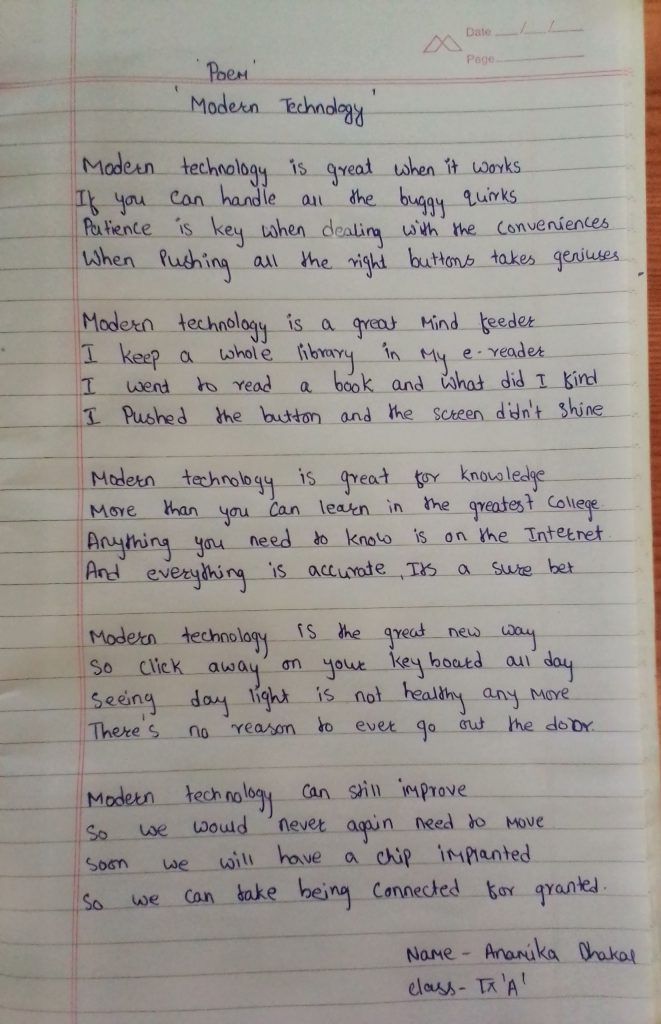 Date __/__/__
Page
'Poem'
'Modern Technology'
Modern technology is great when it works
If you can handle all the buggy quirks
Patience is key when dealing with the conveniences
When Pushing all the right buttons takes geniuses
Modern technology is a great Mind feeder
I keep a whole library in My e-reader
I went to read a book and what did I find
I Pushed the button and the screen didn't shine
Modern technology is great for knowledge
More than you can learn in the greatest College
Anything you need to know is on the Internet.
And everything is accurate, Its a sure bet
Modern technology is the great new way
So click away on your key board all day
Seeing day light is not healthy any More
There's no reason to ever go out the door.
Modern technology can still improve
So we would never again need to Move
Soon we will have a chip implanted
So we can take being connected for granted.
Name - Anamika Dhakal
class - IX 'A'